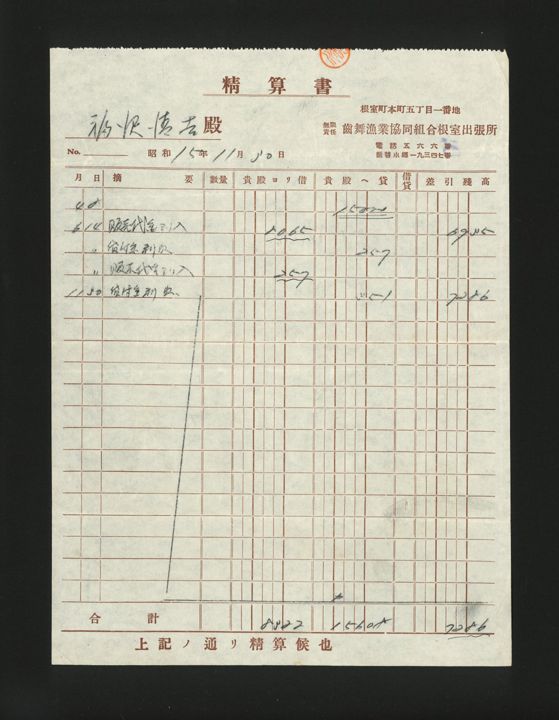 精算書
根室町本町五丁目一番地
殿
無限責任 齒舞漁業協同組合根室出張所
電話五六六番
振替小樽一九三四七番
No. 昭和15年11月30日
月 日 摘要 数量 貴殿ヨリ借 貴殿ヘ貸 借貸 差引残高
4 8 15000
6 14 販売代金ヨリ入 8065 6935
〃 貸付金利息 257
〃 販売代金ヨリ入 257
11 30 貸付金利息 351 7286
合計 8322 15608 7286
上記ノ通リ精算候也